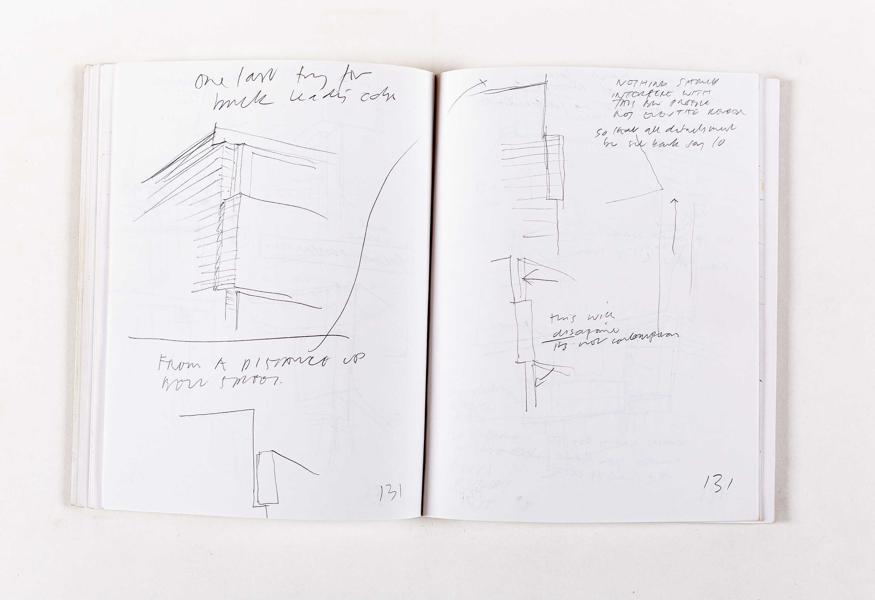 one last try for
back leading edge
FROM A DISTANCE UP
BOW STREET.
131
NOTHING SHOULD
INTERFERE WITH
THIS PROFILE
NOT EVEN THE
so that all detachment
be set back say 10
this will
disappoint
its not
131